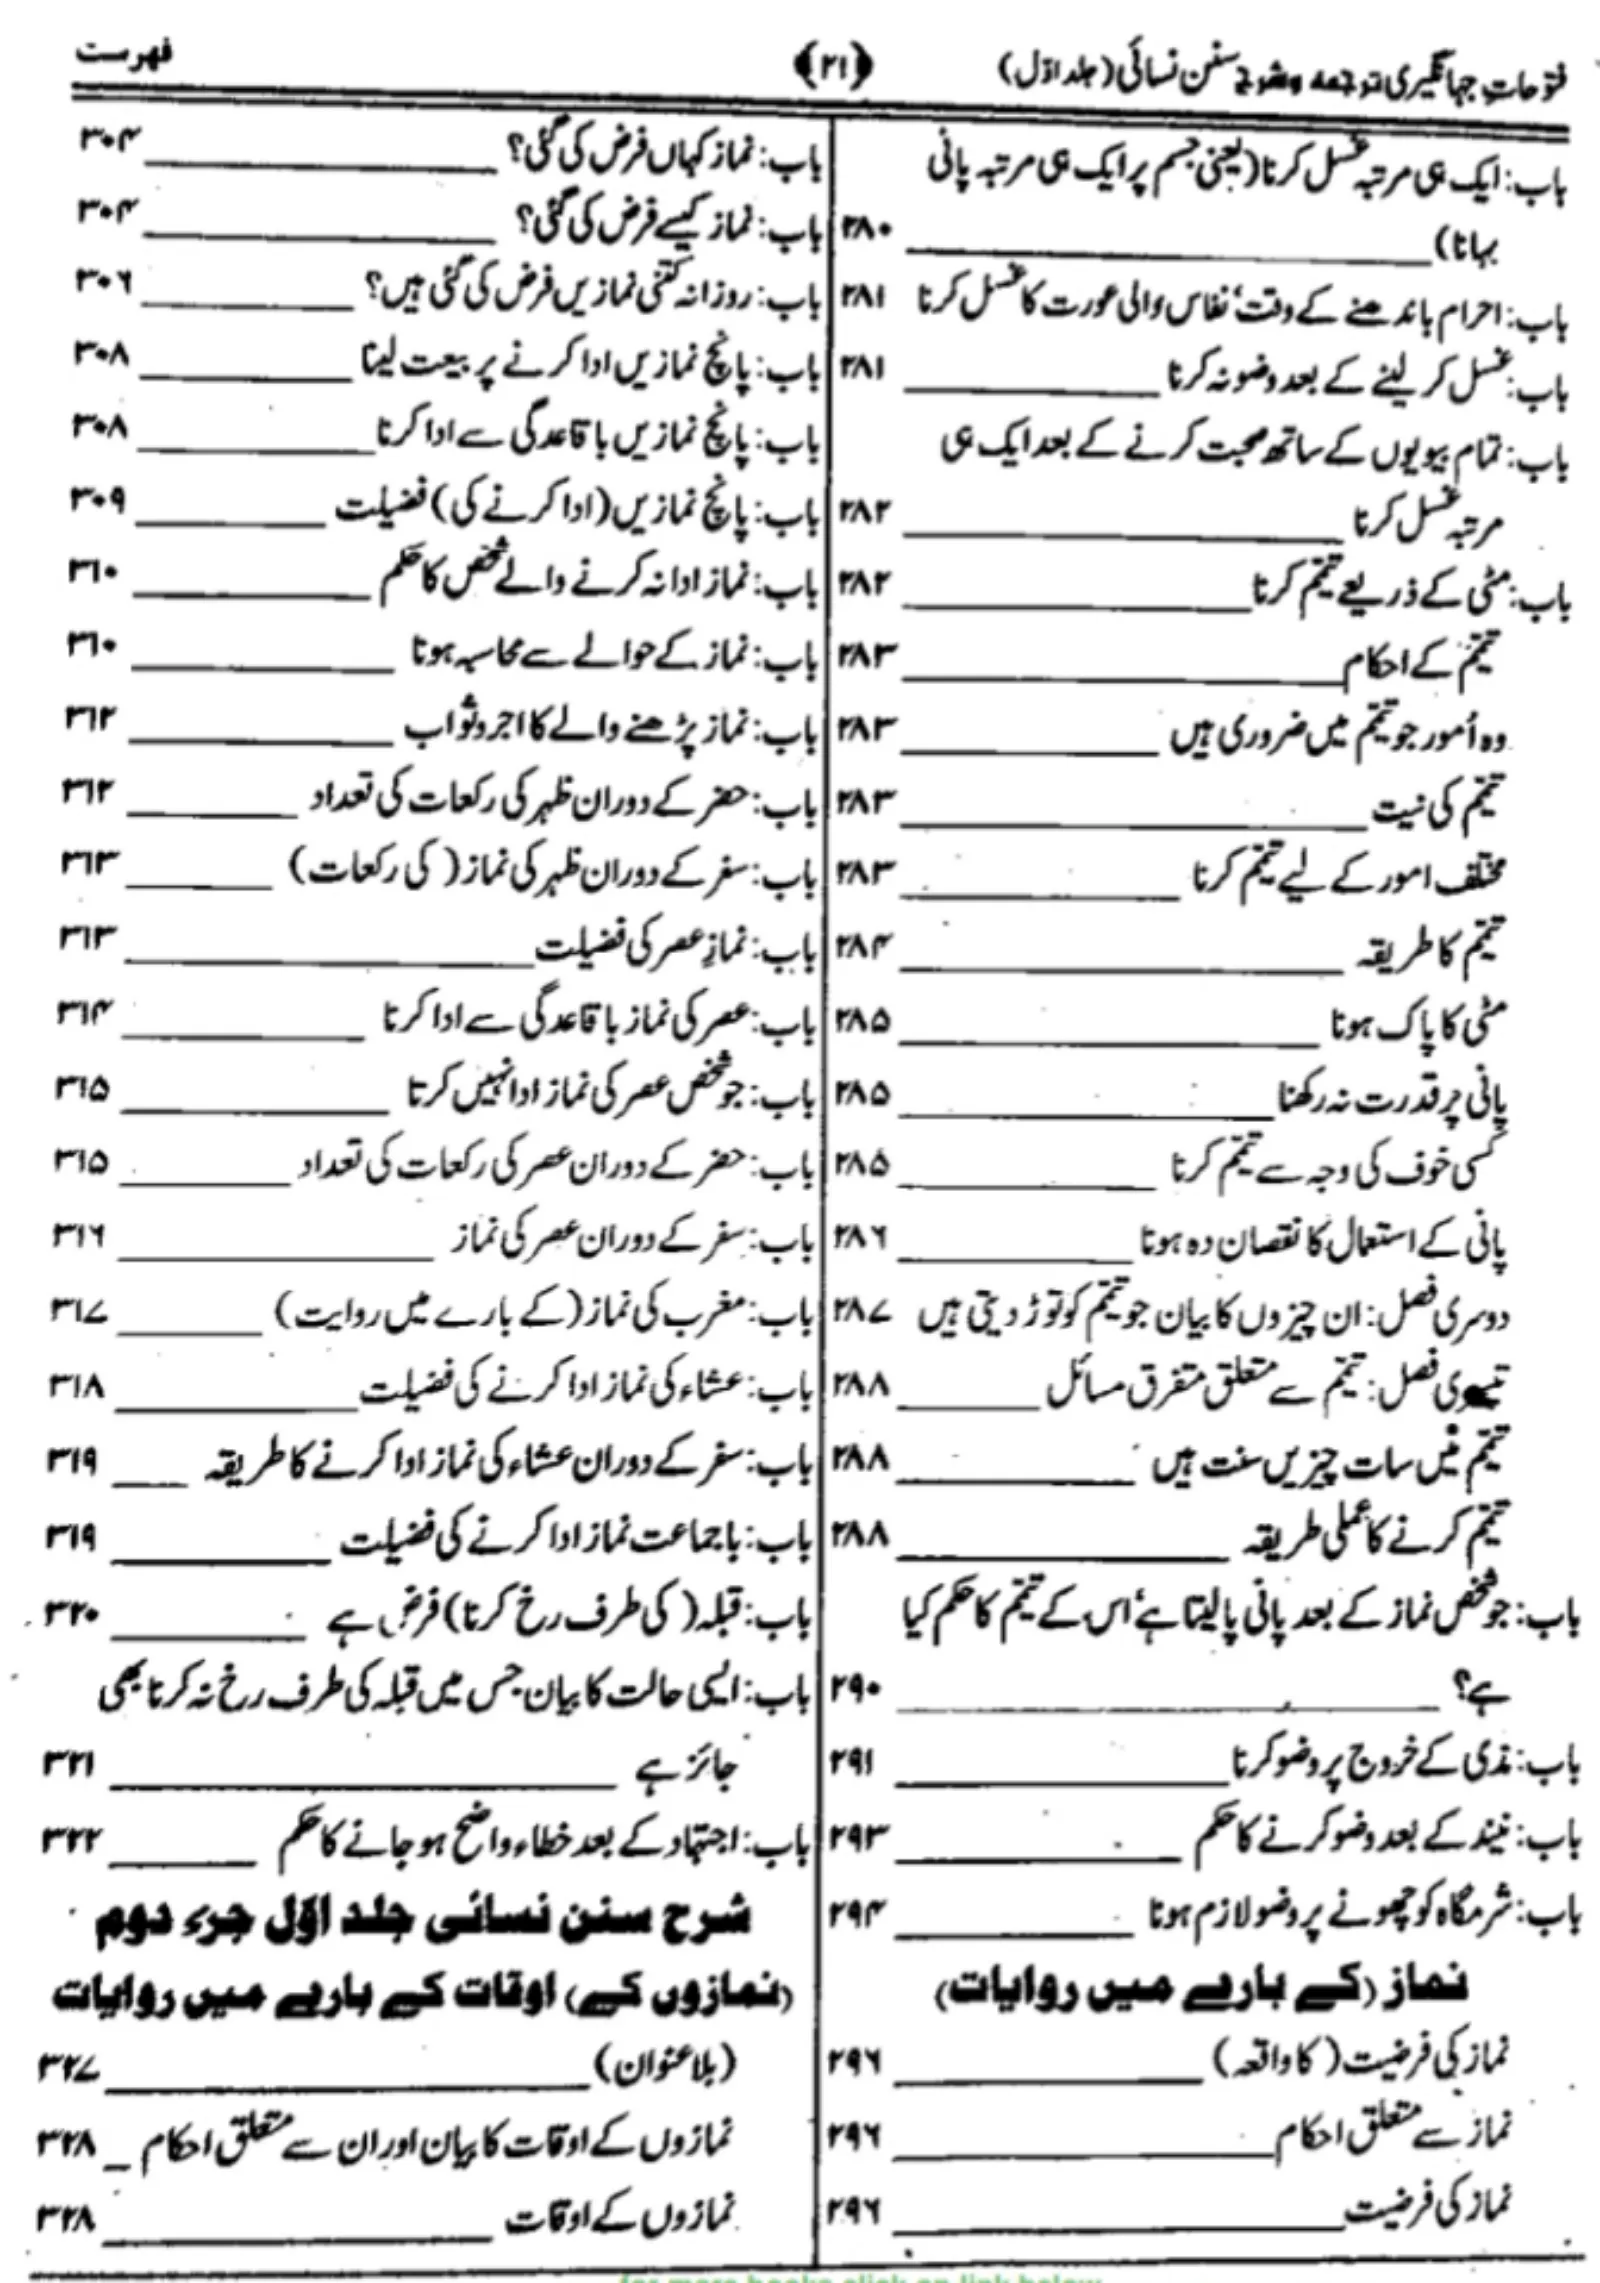 فتوحات جہانگیری ترجمہ و شرح سنن نسائی (جلد اوّل)
﴿۲۱﴾
فہرست
باب: ایک ہی مرتبہ غسل کرنا (یعنی جسم پر ایک ہی مرتبہ پانی
بہانا) ۲۸۰
باب: احرام باندھنے کے وقت، نفاس والی عورت کا غسل کرنا ۲۸۱
باب: غسل کر لینے کے بعد وضو نہ کرنا ۲۸۱
باب: تمام بیویوں کے ساتھ صحبت کرنے کے بعد ایک ہی
مرتبہ غسل کرنا ۲۸۲
باب: مٹی کے ذریعے تیمّم کرنا ۲۸۲
تیمّم کے احکام ۲۸۳
وہ اُمور جو تیمّم میں ضروری ہیں ۲۸۳
تیمّم کی نیت ۲۸۳
مختلف امور کے لیے تیمّم کرنا ۲۸۳
تیمّم کا طریقہ ۲۸۴
مٹی کا پاک ہونا ۲۸۵
پانی پر قدرت نہ رکھنا ۲۸۵
کسی خوف کی وجہ سے تیمّم کرنا ۲۸۵
پانی کے استعمال کا نقصان دہ ہونا ۲۸۶
دوسری فصل: ان چیزوں کا بیان جو تیمّم کو توڑ دیتی ہیں ۲۸۷
تیسری فصل: تیمّم سے متعلق متفرق مسائل ۲۸۸
تیمّم میں سات چیزیں سنت ہیں ۲۸۸
تیمّم کرنے کا عملی طریقہ ۲۸۸
باب: جو شخص نماز کے بعد پانی پا لیتا ہے، اس کے تیمّم کا حکم کیا
ہے؟ ۲۹۰
باب: مذی کے خروج پر وضو کرنا ۲۹۱
باب: نیند کے بعد وضو کرنے کا حکم ۲۹۳
باب: شرمگاہ کو چھونے پر وضو لازم ہونا ۲۹۴
نماز (کے بارے میں روایات)
نماز کی فرضیت (کا واقعہ) ۲۹۶
نماز سے متعلق احکام ۲۹۶
نماز کی فرضیت ۲۹۶
باب: نماز کہاں فرض کی گئی؟ ۳۰۴
باب: نماز کیسے فرض کی گئی؟ ۳۰۴
باب: روزانہ کتنی نمازیں فرض کی گئی ہیں؟ ۳۰۶
باب: پانچ نمازیں ادا کرنے پر بیعت لینا ۳۰۸
باب: پانچ نمازیں باقاعدگی سے ادا کرنا ۳۰۸
باب: پانچ نمازیں (ادا کرنے کی) فضیلت ۳۰۹
باب: نماز ادا نہ کرنے والے شخص کا حکم ۳۱۰
باب: نماز کے حوالے سے محاسبہ ہونا ۳۱۰
باب: نماز پڑھنے والے کا اجر و ثواب ۳۱۲
باب: حضر کے دوران ظہر کی رکعات کی تعداد ۳۱۲
باب: سفر کے دوران ظہر کی نماز (کی رکعات) ۳۱۳
باب: نمازِ عصر کی فضیلت ۳۱۳
باب: عصر کی نماز باقاعدگی سے ادا کرنا ۳۱۴
باب: جو شخص عصر کی نماز ادا نہیں کرتا ۳۱۵
باب: حضر کے دوران عصر کی رکعات کی تعداد ۳۱۵
باب: سفر کے دوران عصر کی نماز ۳۱۶
باب: مغرب کی نماز (کے بارے میں روایت) ۳۱۷
باب: عشاء کی نماز ادا کرنے کی فضیلت ۳۱۸
باب: سفر کے دوران عشاء کی نماز ادا کرنے کا طریقہ ۳۱۹
باب: باجماعت نماز ادا کرنے کی فضیلت ۳۱۹
باب: قبلہ (کی طرف رخ کرنا) فرض ہے ۳۲۰
باب: ایسی حالت کا بیان جس میں قبلہ کی طرف رخ نہ کرنا بھی
جائز ہے ۳۲۱
باب: اجتہاد کے بعد خطاء واضح ہو جانے کا حکم ۳۲۲
شرح سنن نسائی جلد اوّل جزء دوم
(نمازوں کے) اوقات کے بارے میں روایات
(بلاعنوان) ۳۲۷
نمازوں کے اوقات کا بیان اور ان سے متعلق احکام ۳۲۸
نمازوں کے اوقات ۳۲۸
for more books click on link below